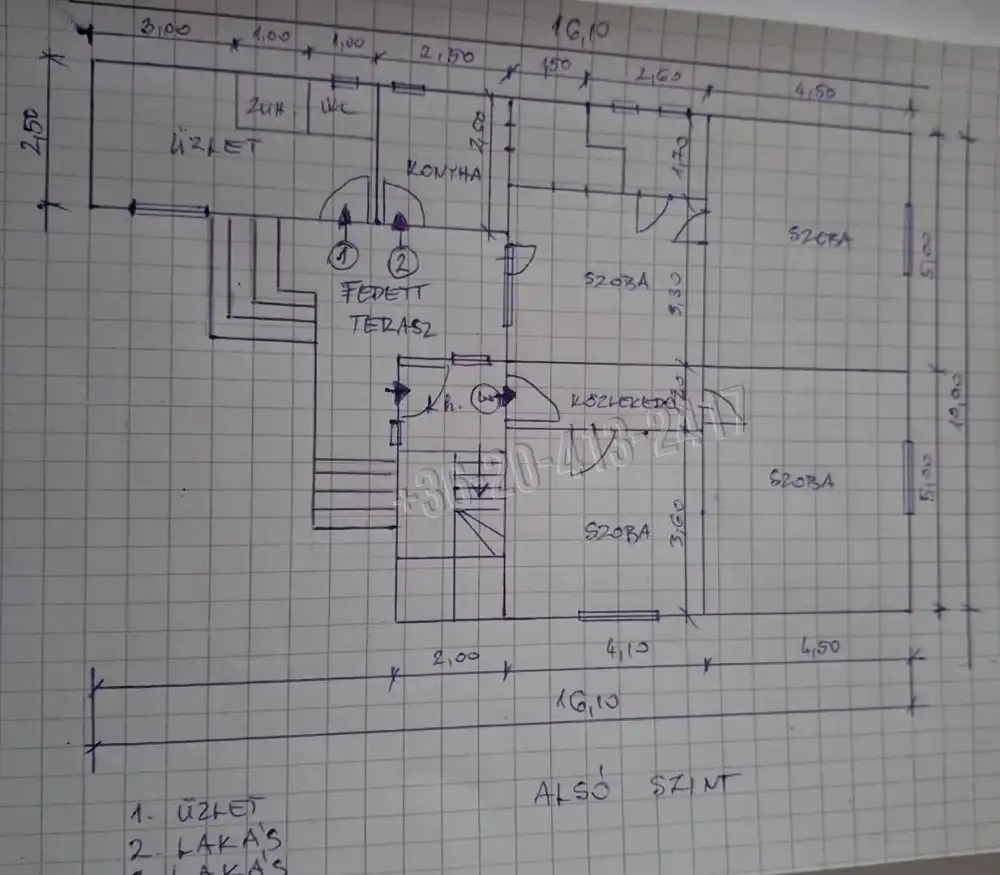 16,10
3,00 1,00 1,00 2,50 1,50 2,60 4,50
2,50
ZUH. WC
ÜZLET
KONYHA
2,60
1,70
SZOBA
5,00
1 2
SZOBA
3,30
FEDETT
TERASZ
10,00
Kh.
3
KÖZLEKEDŐ
+36-20-413-2417
SZOBA
5,00
SZOBA
3,60
2,00 4,10 4,50
16,10
ALSÓ SZINT
1. ÜZLET
2. LAKÁS
LAKÁS